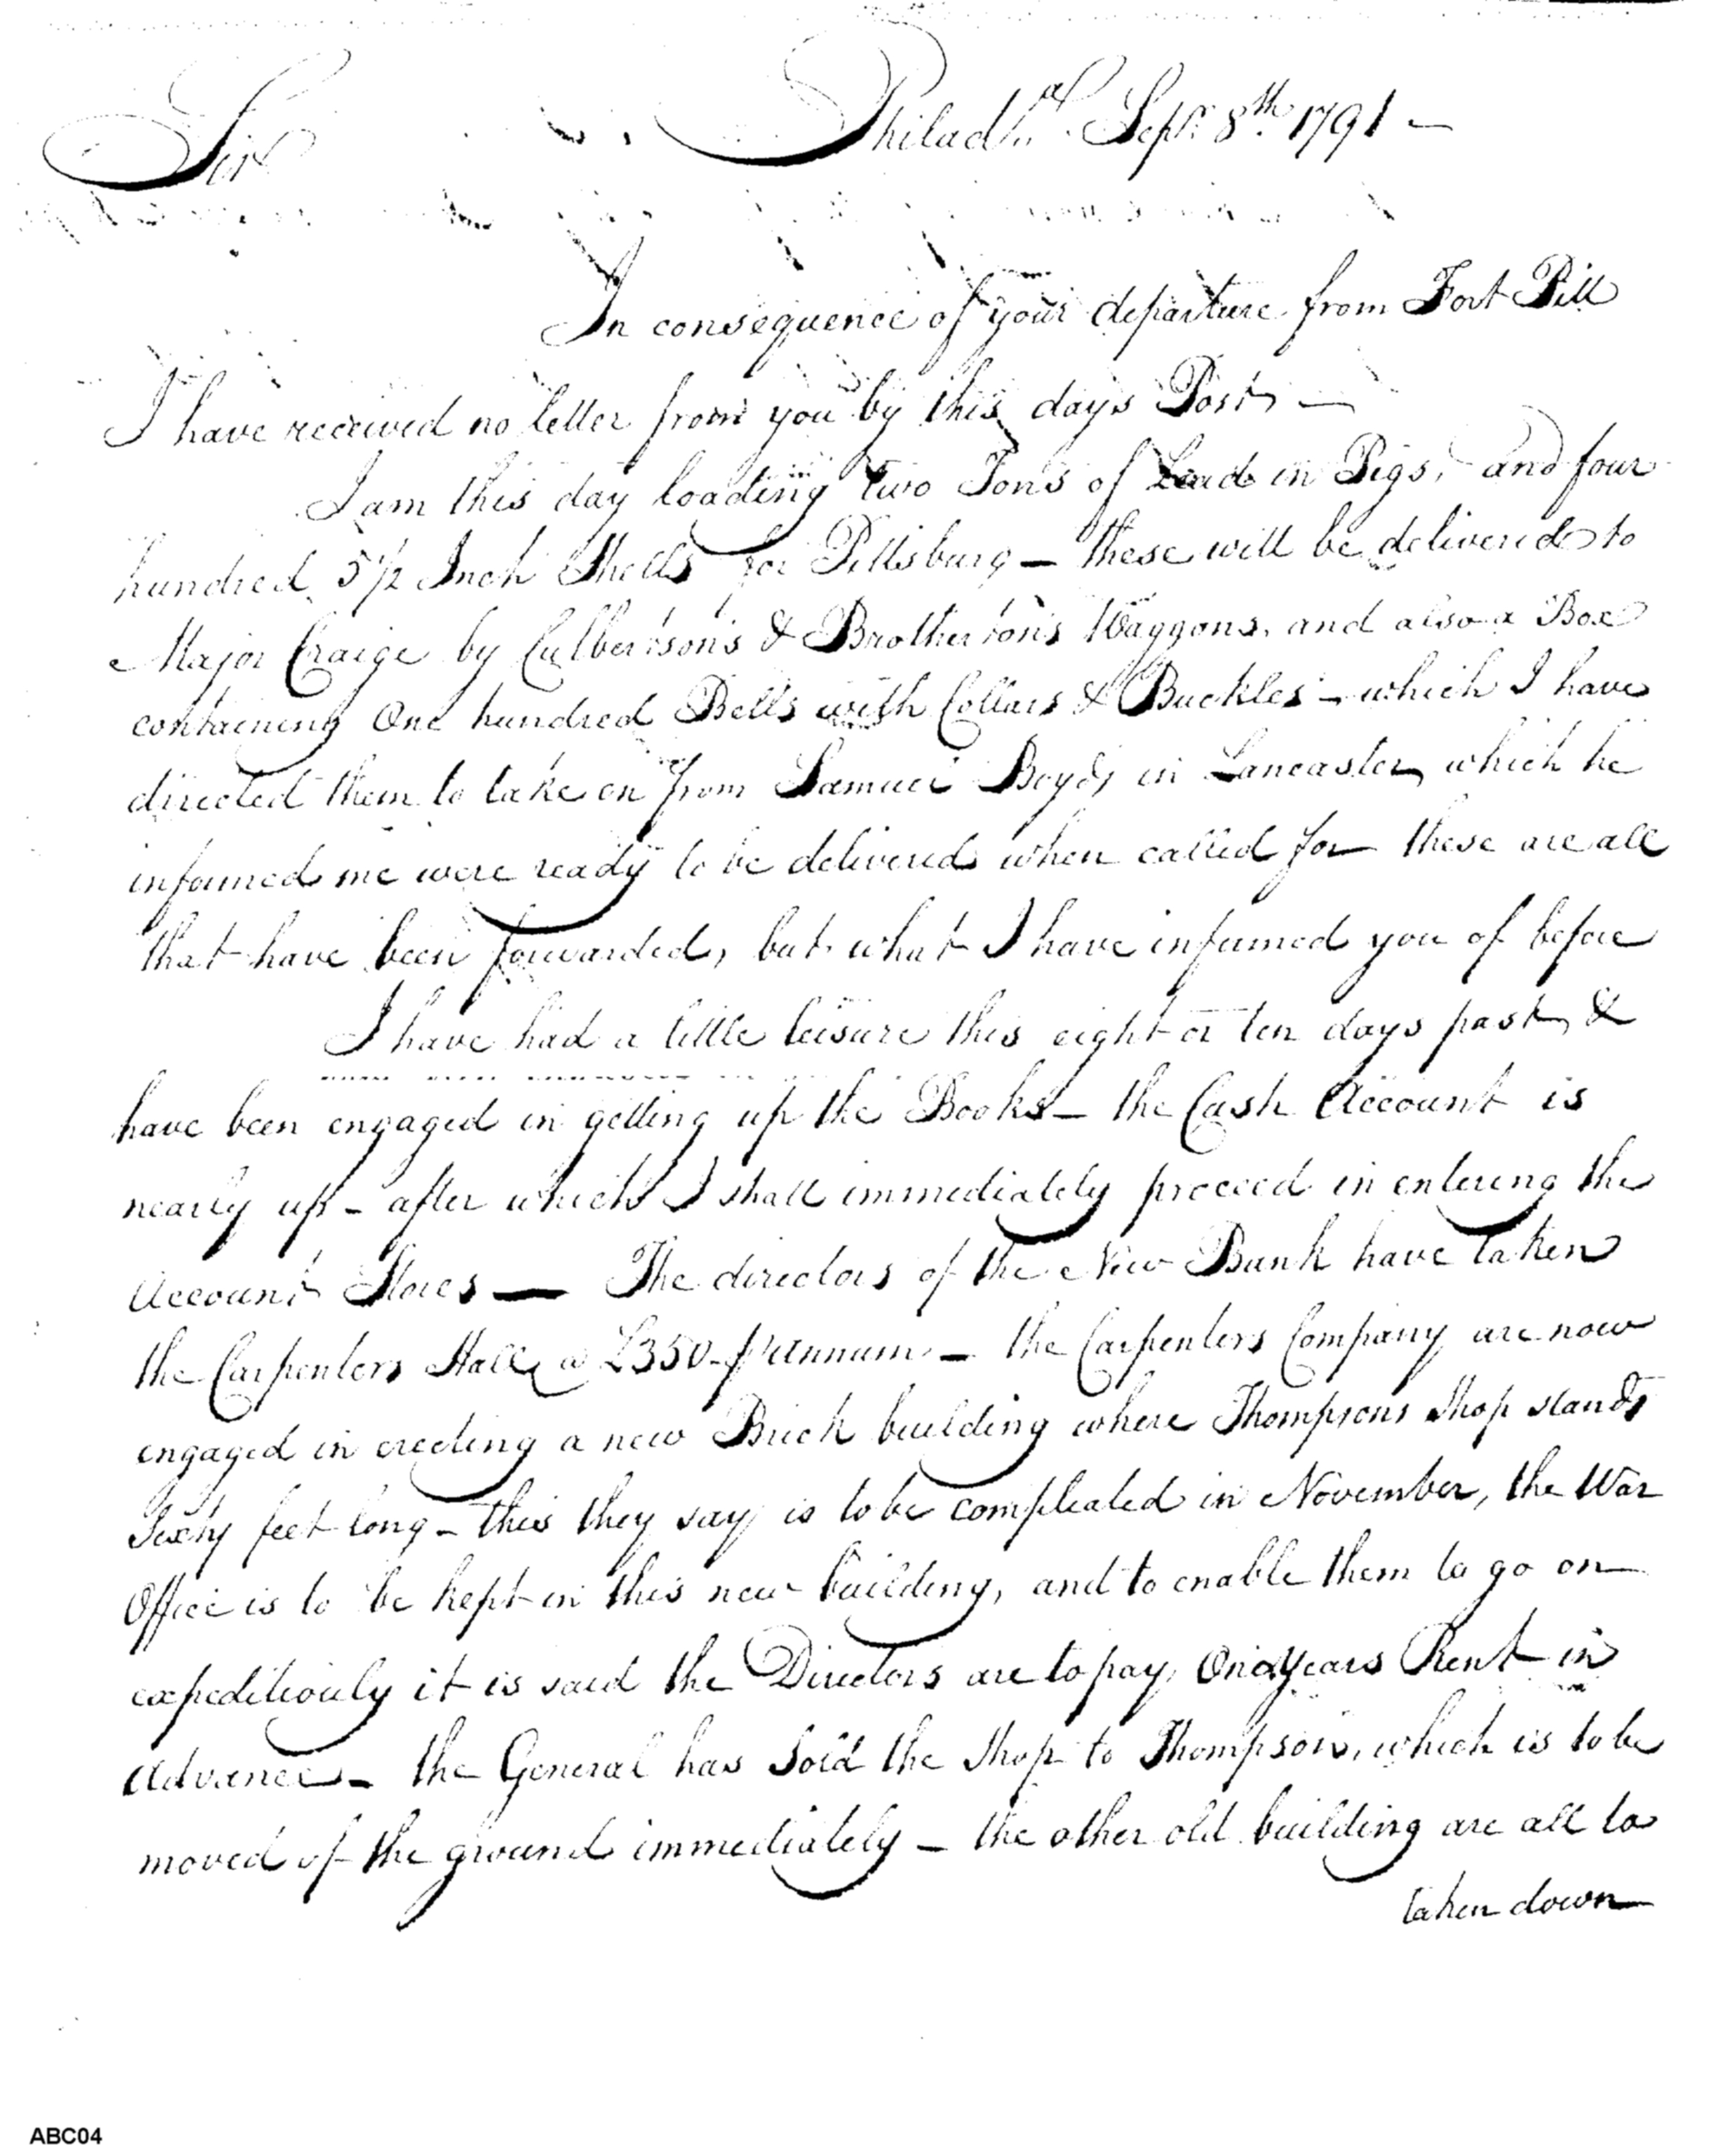 Sir
Philada. Sept. 8th. 1791 —
In consequence of your departure from Fort Pitt
I have received no letter from you by this days Post —
I am this day loading two Tons of Lead in Pigs, and four
hundred 5 1/2 Inch Shells for Pittsburg — these will be delivered to
Major Craige by Culbertson's & Brotherton's Waggons, and also a Box
containing One hundred Bells with Collars & Buckles — which I have
directed them to take on from Samuel Boyds in Lancaster, which he
informed me were ready to be delivered when called for these are all
that have been forwarded, but what I have infumed you of before
I have had a little leisure this eight or ten days past, &
have been engaged in getting up the Books — the Cash Account is
nearly up — after which I shall immediately proceed in entering the
Account Stores — The directors of the New Bank have taken
the Carpenters Hall @ £350 p Annum — the Carpenters Company are now
engaged in erecting a new Brick building where Thompsons Shop stands
Sixty feet long — this they say is to be compleated in November, the War
Office is to be kept in this new building, and to enable them to go on
expeditiously it is said the Directors are to pay One years Rent in
Advance — the General has Sold the Shop to Thompson, which is to be
moved of the ground immediately — the other old building are all to
taken down
ABC04